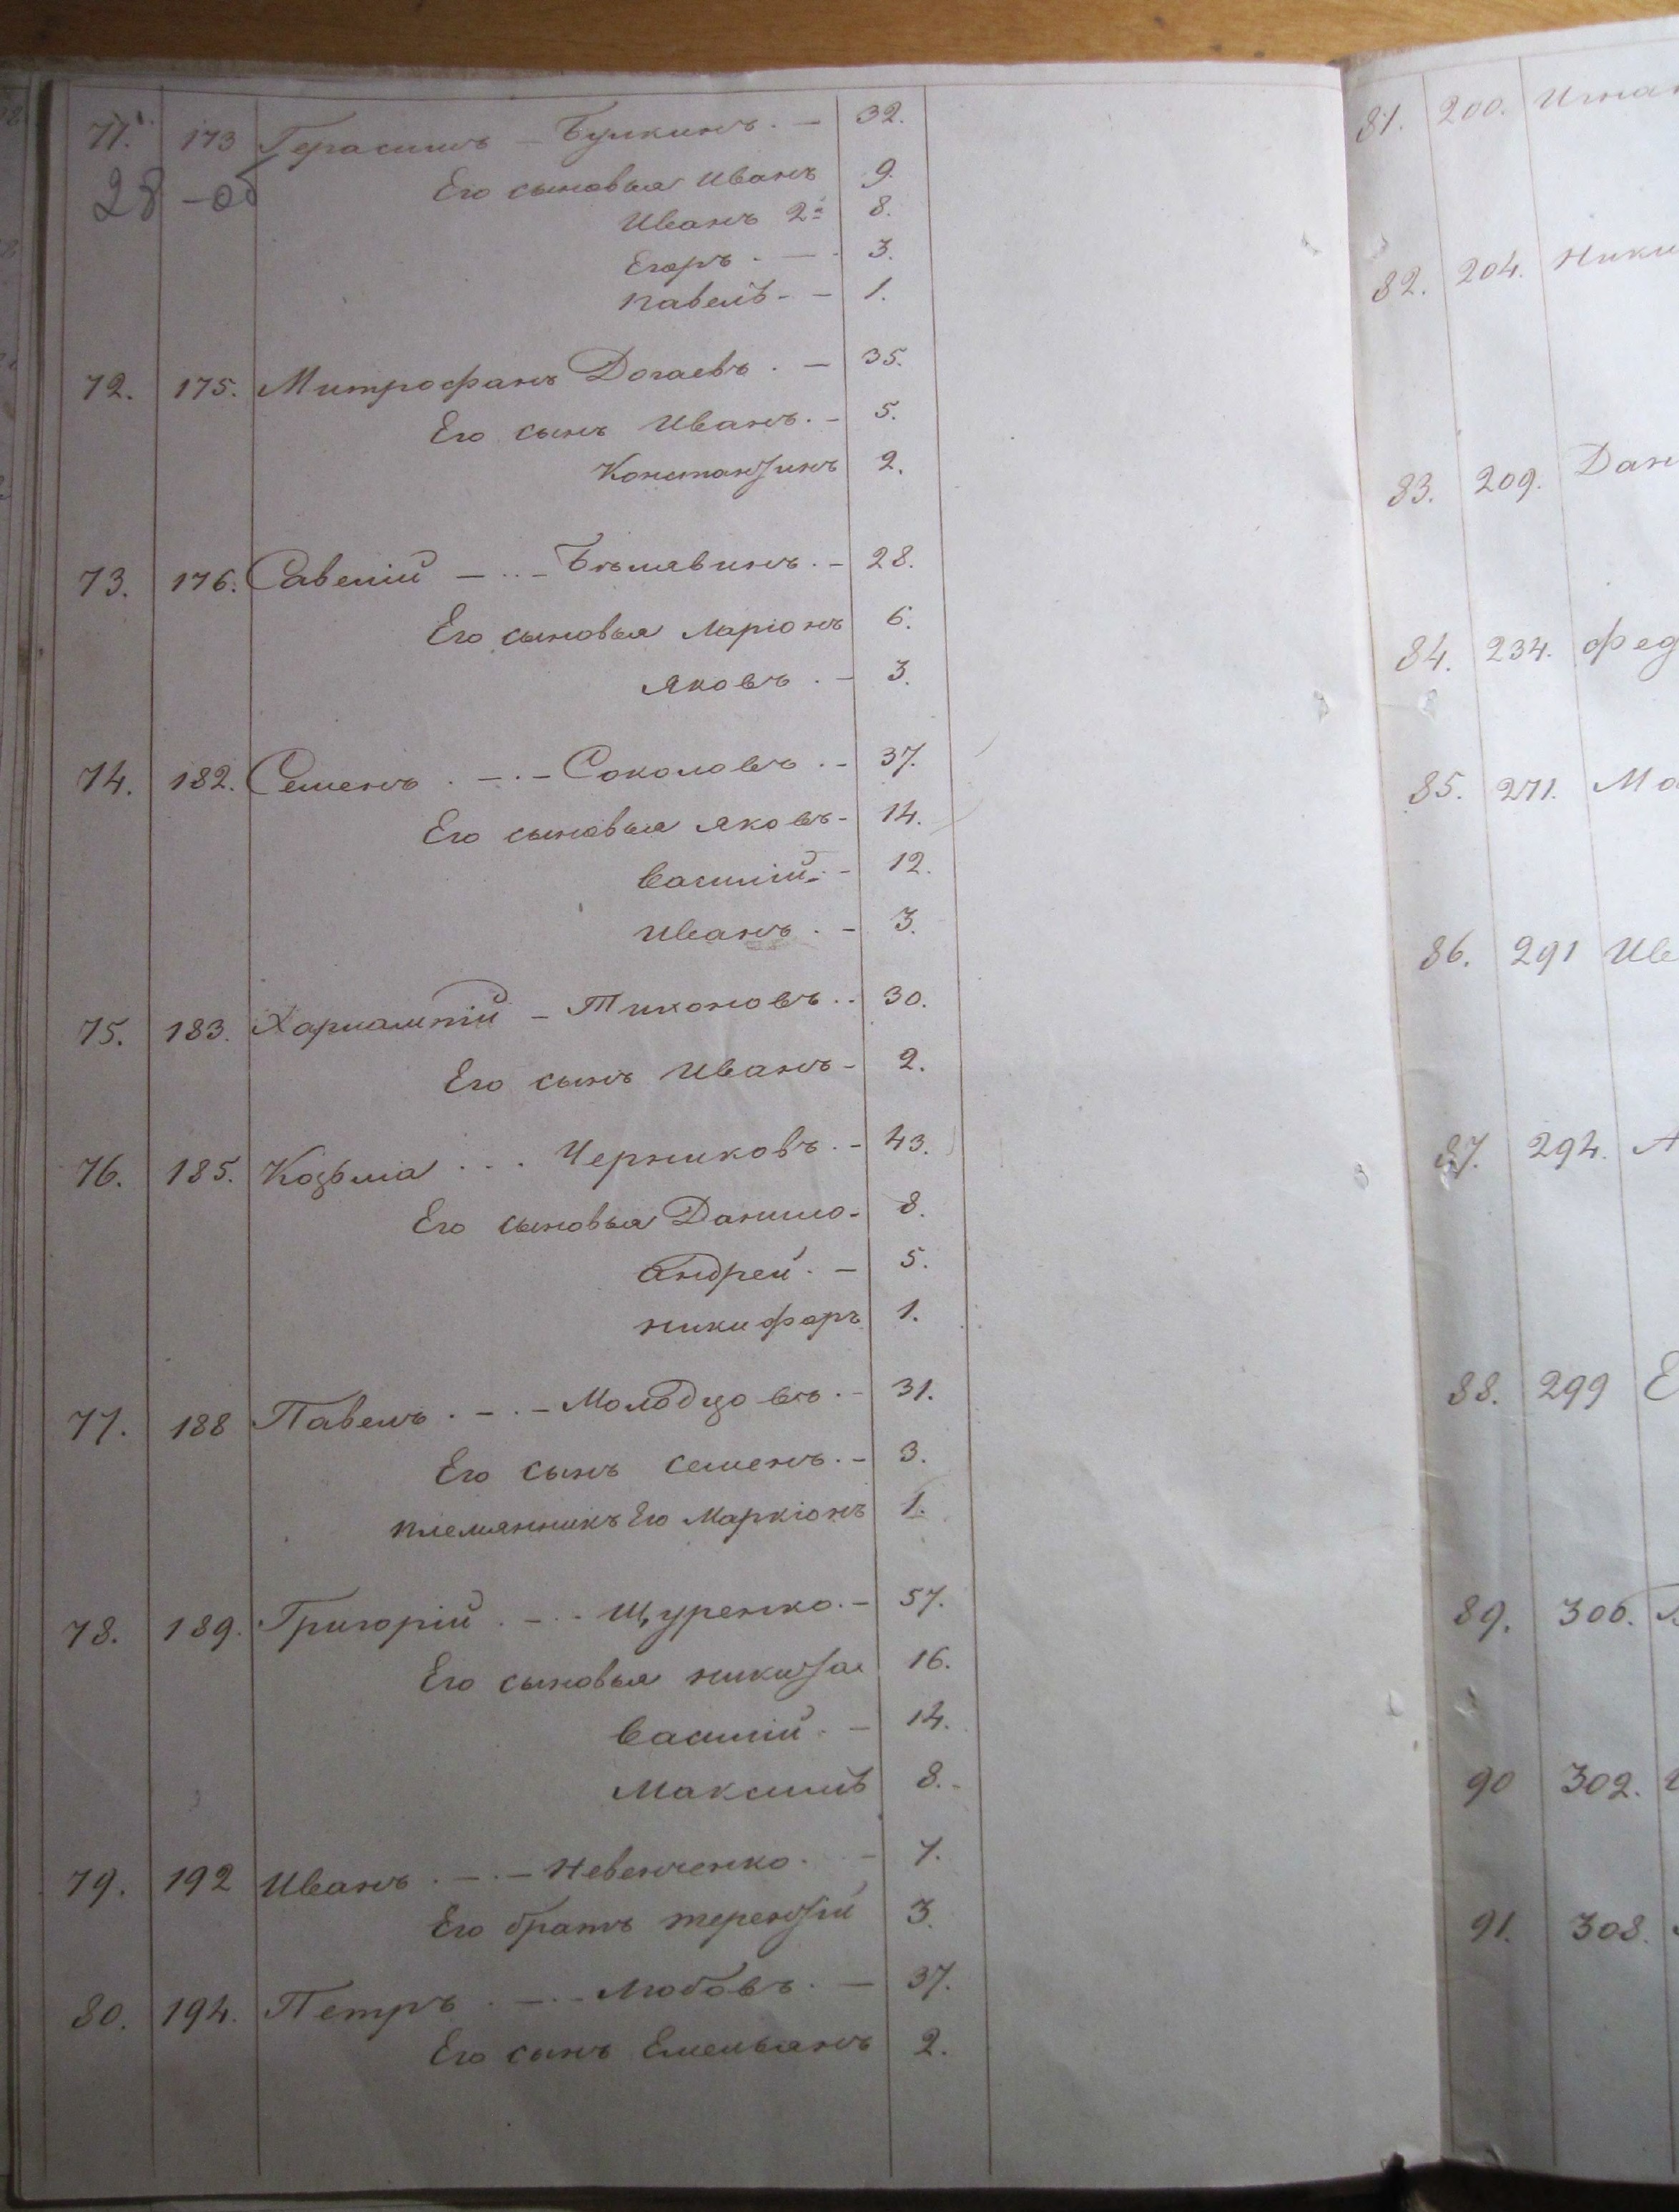 71. 173 Герасимъ – Булкинъ. – 32.
28-об
Его сыновья Иванъ 9.
Иванъ 2й 8.
Егоръ. – 3.
Павелъ – – 1.
72. 175. Митрофанъ Догаевъ. – 35.
Его сынъ Иванъ. – 5.
Константинъ 2.
73. 176. Савелій – .. – – 28.
Его сыновья Ларіонъ 6.
Яковъ. – 3.
74. 182. Семенъ. – . – Соколовъ. – 37.
Его сыновья Яковъ – 14.
Василій. – 12.
Иванъ. – 3.
75. 183. Харлампій – Тихоновъ.. 30.
Его сынъ Иванъ – 2.
76. 185. Козьма ... Черниковъ. – 43.
Его сыновья Данило – 8.
Андрей. – 5.
Никифоръ 1.
77. 188 Павелъ. – . – Молодцовъ. – 31.
Его сынъ Семенъ. – 3.
Племянникъ Его Маркіонъ 1.
78. 189. Григорій. – . – Щуренко. – 57.
Его сыновья Никита 16.
Василій. – 14.
Максимъ 8.
79. 192 Иванъ. – . – Невенченко. – 7.
Его братъ Терентій 3.
80. 194. Петръ. – . – Любовъ. – 37.
Его сынъ Емельянъ 2.
81. 200.
82. 204. Ники
83. 209. Дан
84. 234. Фед
85. 271. Мо
86. 291 Ив
87. 294. А
88. 299 Е
89. 306.
90 302.
91. 308.